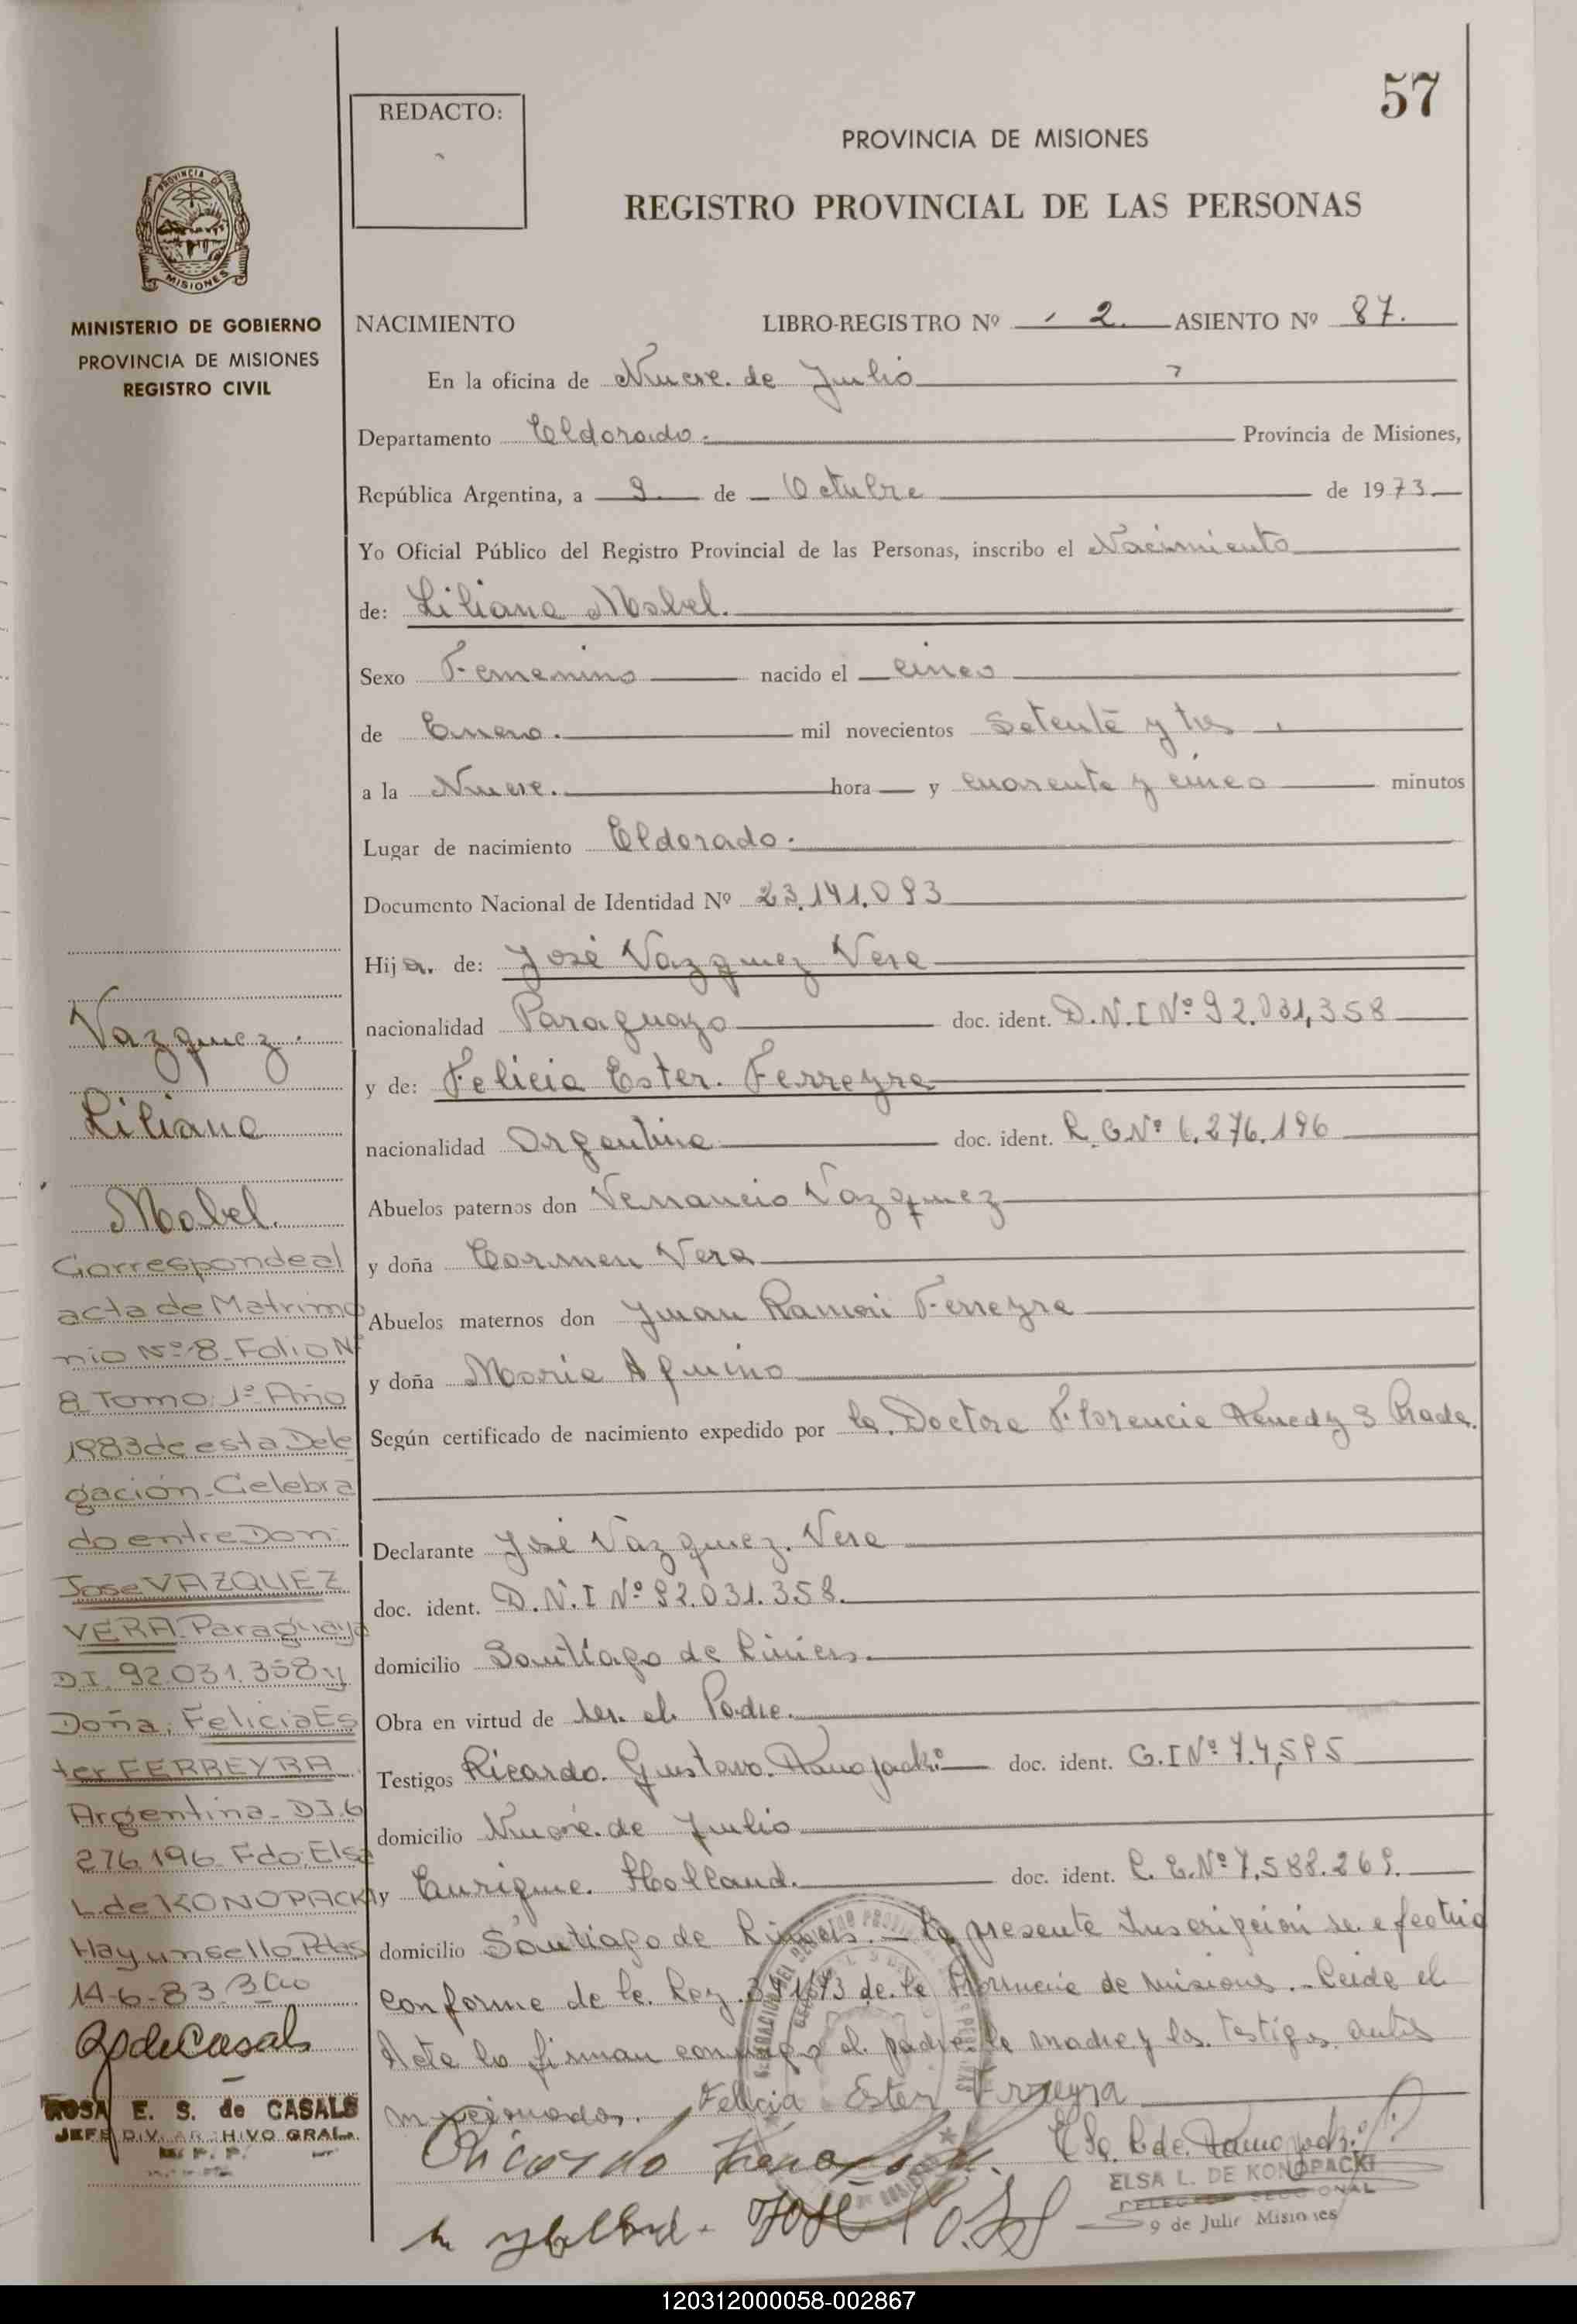 57
REDACTO:
PROVINCIA DE MISIONES
REGISTRO PROVINCIAL DE LAS PERSONAS
PROVINCIA DE
MISIONES
MINISTERIO DE GOBIERNO
PROVINCIA DE MISIONES
REGISTRO CIVIL
NACIMIENTO LIBRO-REGISTRO Nº 2. ASIENTO Nº 87.
En la oficina de Nueve de Julio
Departamento Eldorado. Provincia de Misiones,
República Argentina, a 9 de Octubre de 1973
Yo Oficial Público del Registro Provincial de las Personas, inscribo el Nacimiento
de: Liliana Mabel.
Sexo Femenino nacido el cinco
de Enero. mil novecientos Setenta y tres
a la Nueve. hora y cuarenta y cinco minutos
Lugar de nacimiento Eldorado.
Documento Nacional de Identidad Nº 23.141.093
Hija. de: José Vazquez Vera
nacionalidad Paraguayo doc. ident. D.N.I Nº 92.031,358
y de: Felicia Ester. Ferreyra
nacionalidad Argentina doc. ident. Nº 6.276.196
Abuelos paternos don Venancio Vazquez
y doña Carmen Vera
Abuelos maternos don Juan Ramón Ferreyra
y doña María Aquino
Según certificado de nacimiento expedido por la Doctora Florencia
Declarante José Vazquez. Vera
doc. ident. D.N.I Nº 92.031.358.
domicilio Santiago de Liniers.
Obra en virtud de ser el Padre.
Testigos Ricardo. Gustavo. doc. ident. C.I Nº 74,595
domicilio Nueve de Julio
y Enrique. Holland. doc. ident. Nº 7.588.269.
domicilio Santiago de Liniers. — La presente Inscripción se efectúa
conforme de la Ley de la Provincia de Misiones. - Leida el
Acta la firman conmigo el padre la madre y los testigos antes
mencionados. Felicia Ester Ferreyra
Ricardo
ELSA L. DE KONOPACKI
DELEGADO SECCIONAL
9 de Julio Misiones
José
Vazquez.
Liliana
Mabel.
Corresponde al
acta de Matrimo
nio Nº 8 - Folio Nº
8 Tomo 1º Año
1983 de esta Dele
gación - Celebra
do entre Don:
Jose VAZQUEZ
VERA - Paraguayo
D.I. 92.031.358 y
Doña: Felicia Es
ter FERREYRA
Argentina - D.I. 6
276.196 - Fdo. Elsa
L. de KONOPACKI
Hay un sello - Pdas
14-6-83
de Casals
ROSA E. S. de CASALS
JEFE DIV. ARCHIVO GRAL.
R. P. P.
120312000058-002867